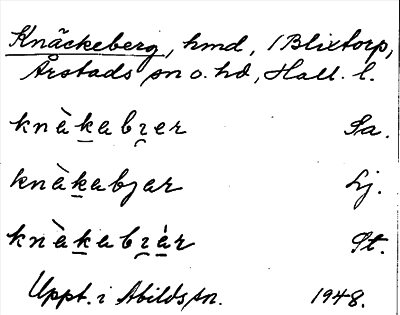 Knäckeberg, hmd, i Blixtorp,
Årstads sn o. hd, Hall. l.
knàkabɪ̯er Sa.
knàkabjar Lj.
knàkabɪ̯ár St.
Uppt. i Abilds sn. 1948.